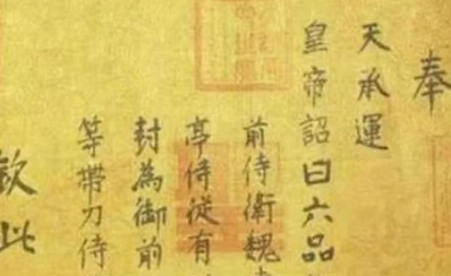 奉
天承運
皇帝詔曰六品
前侍衛魏
亭侍從有
封為御前
等帶刀侍
欽此